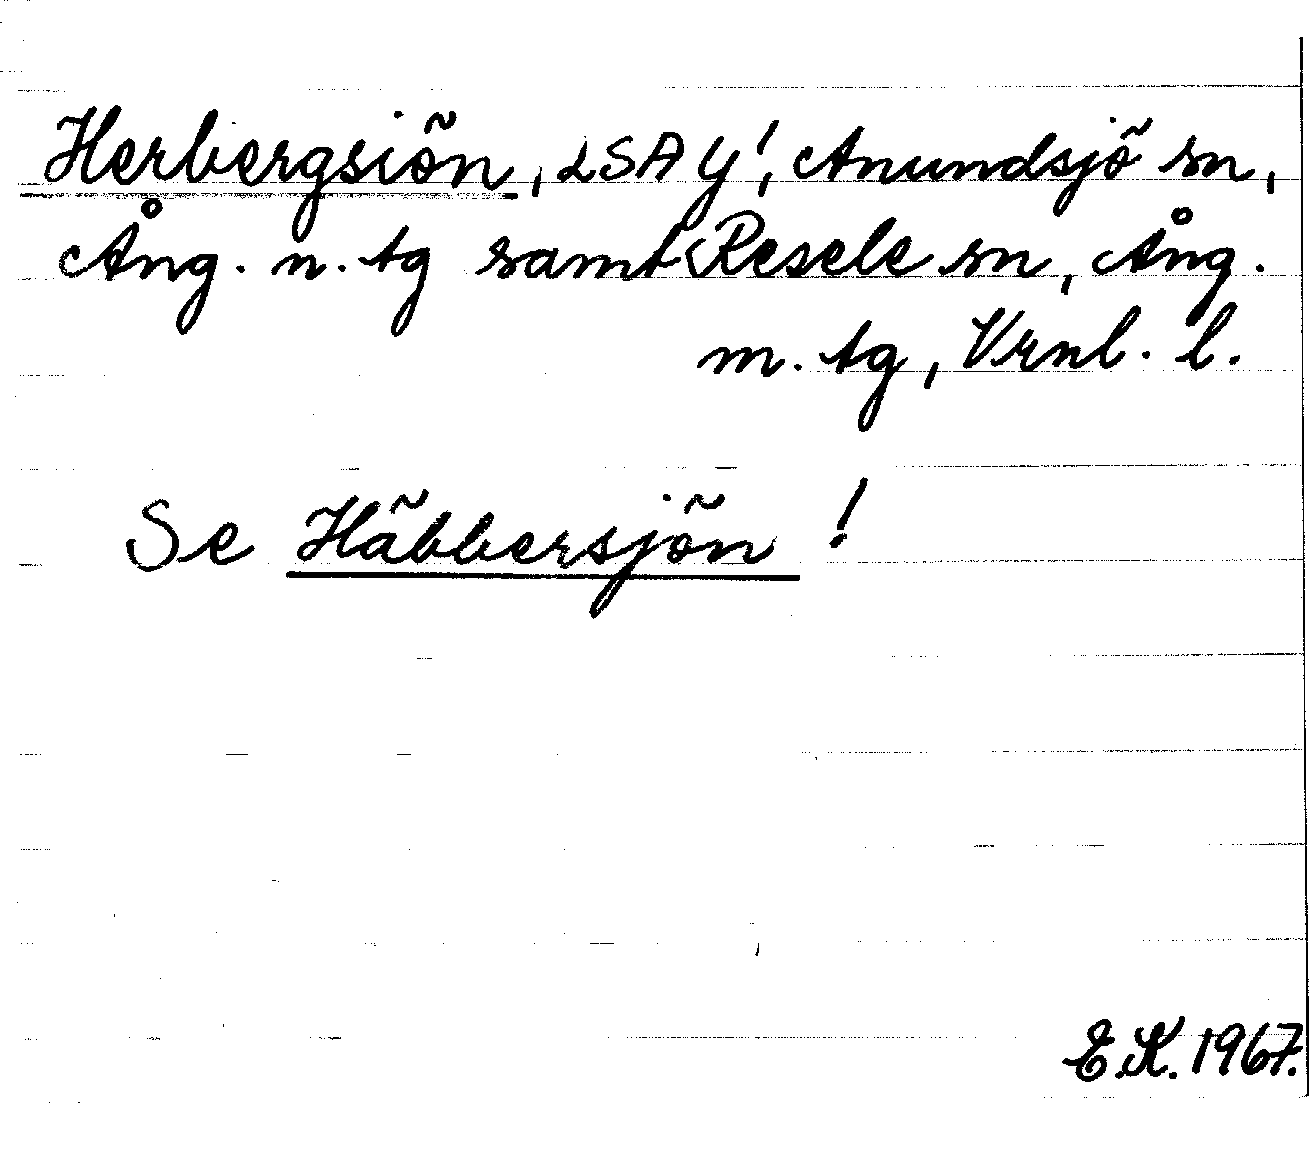 Herbergsiön, LSA Y!, Anundsjö sn,
Ång. n. tg samt Resele sn, Ång.
m. tg, Vrnl. l.
Se Häbbersjön!
E.K. 1967.